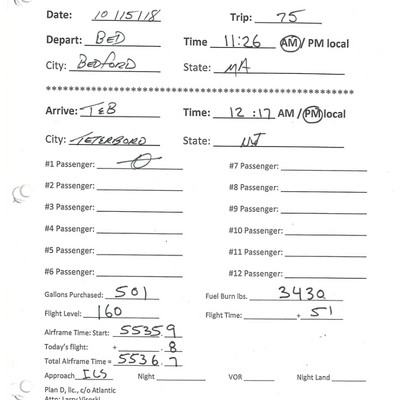 Date: 10/15/18 Trip: 75
Depart: BED Time 11:26 AM / PM local
City: BEDFORD State: MA
****************************************************
Arrive: TEB Time: 12:17 AM / PM local
City: TETERBORO State: NJ
#1 Passenger: 0 #7 Passenger:
#2 Passenger: #8 Passenger:
#3 Passenger: #9 Passenger:
#4 Passenger: #10 Passenger:
#5 Passenger: #11 Passenger:
#6 Passenger: #12 Passenger:
Gallons Purchased: 501 Fuel Burn lbs. 3430
Flight Level: 160 Flight Time: + 51
Airframe Time: Start: 5535.9
Today's flight: + .8
Total Airframe Time = 5536.7
Approach ILS Night VOR Night Land
Plan D, llc., c/o Atlantic
Attn: Larry Visoski